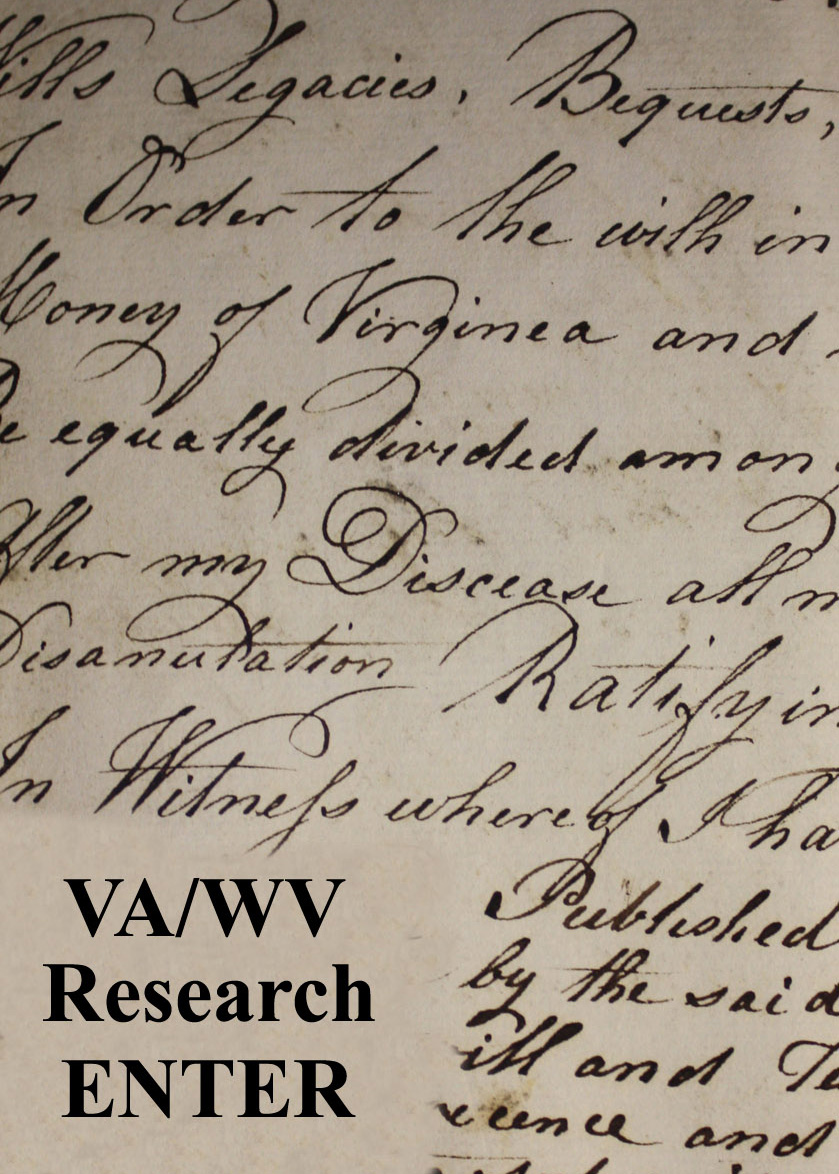 ills Legacies, Bequests,
In Order to the with in
Money of Virginea and
be equally divided among
After my Discease all m
Disanulation Ratifyin
In Witneſs whereof I ha
Published
by the said
ill and Te
and
VA/WV
Research
ENTER